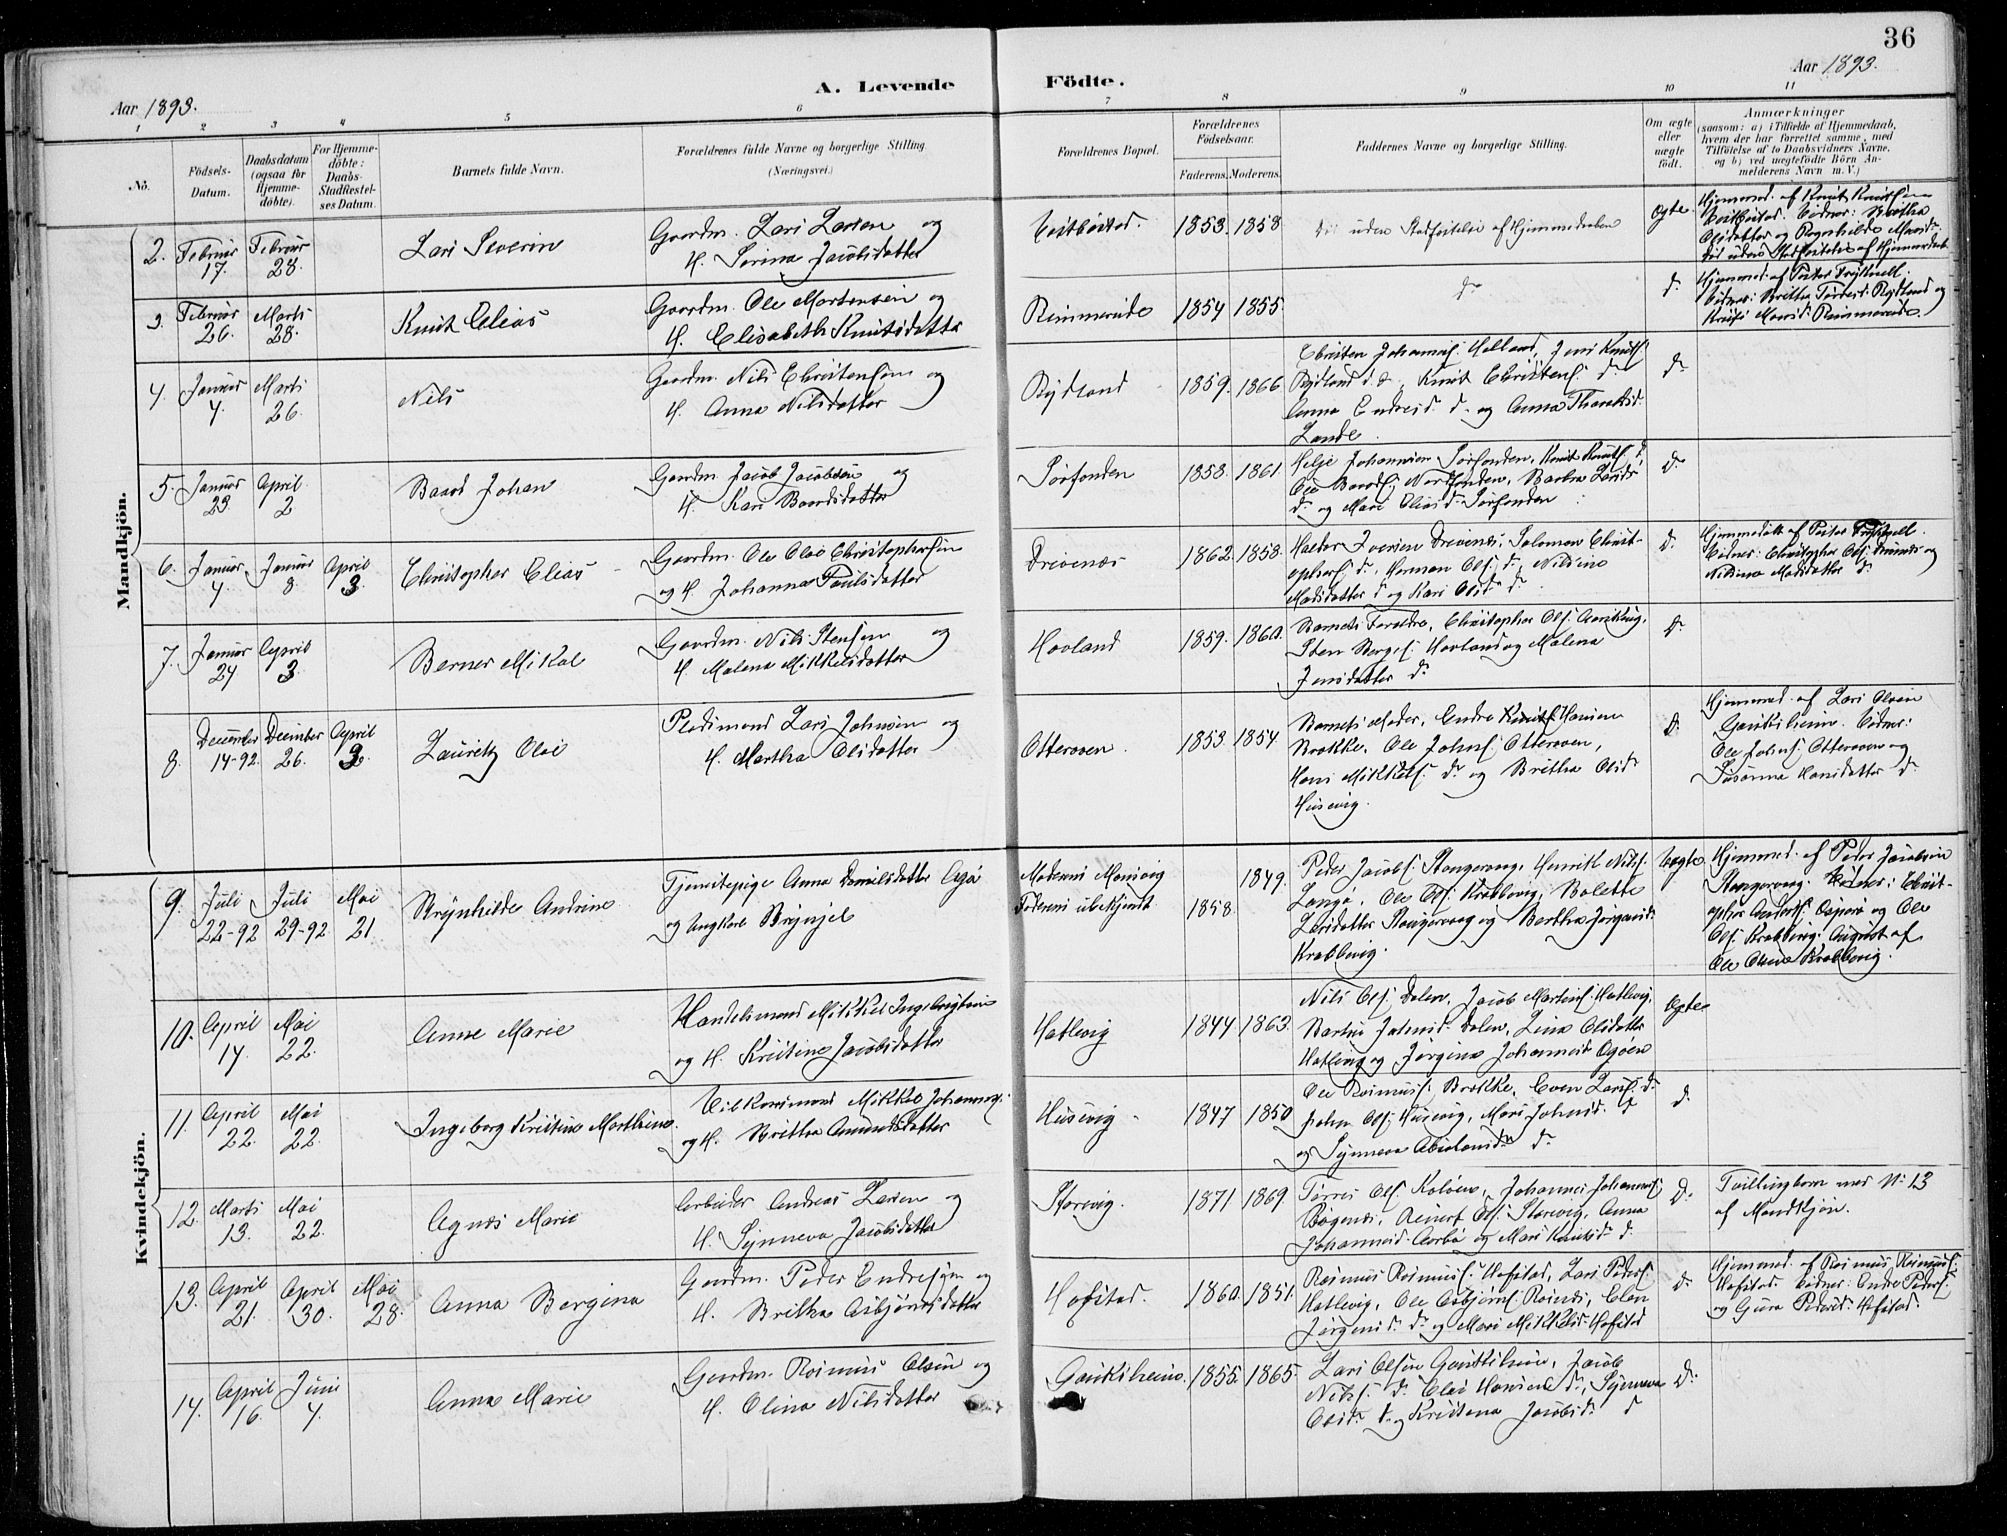 36
Aar 1893.
A. Levende
Födte.
Aar 1893.
1 2 3 4 5 6 7 8 9 10 11
No.
Födsels-Datum.
Daabsdatum (ogsaa for Hjemmedöbte).
For Hjemmedöbte: Daabs-Stadfæstelses Datum.
Barnets fulde Navn.
Forældrenes fulde Navne og borgerlige Stilling (Næringsvei.)
Forældrenes Bopæl.
Forældrenes Födselsaar.
Faderens. Moderens.
Faddernes Navne og borgerlige Stilling.
Om ægte eller uægte födt.
Anmærkninger (saasom: a) i Tilfælde af Hjemmedaab, hvem der har forrettet samme, med Tilföielse af to Daabsvidners Navne, og b) ved uægtefödte Börn Anmelderens Navn m. V.)
Mandkjön.
2. Februar 17. Februar 28. Lars Severin
Gaardm. Lars Larsen og
H. Serina Jacobsdatter
1853. 1858
uden Stadfæstelse af Hjemmedaaben
Ægte
Hjemmed. af Knut Knuts
3. Februar 26. Marts 28. Knut Elias
Gaardm. Ole Mortensen og
H. Elisabeth Knutsdatter
Rimmereide 1854 1855.
d°
d°
4. Januar 4. Marts 26. Nils
Gaardm. Nils Christensen og
H. Anna Nilsdatter
Rydland 1859. 1866
Christen Johannes. Helland, Jens Knuts.
Rydland d°, Knut Christens. d°
Anna Endresd. d° og Anna
Lande
d°
5. Januar 23. April 2 Baard Johan
Gaardm. Jacob Jacobsen og
H. Kari Baardsdatter
Sørfonden 1858. 1861.
Helje Johannesen Sørfonden, Knut Knuts. d°
Ole Baards. Nordfonden, Barbra Larsd.
d° og Mari Oliasd. Sørfonden
d°
6. Januar 4. Januar 8 April 3. Christopher Elias
Gaardm. Ole Olai Christophersen
og H. Johanna Paulsdatter
Drivenæs 1862. 1858.
Haldor Iversen Drivenæs, Salomon Christ-
ophers. d°, Herman Ols. d°, Nilsine
Madsdatter d° og Kari Olsd. d°
d°
Vidner: Christopher Ols. Drivenes og
Nilsina Madsdatter d°
7. Januar 24 April 3. Berner Mikal
Gaardm. Nils Stensen og
H. Malena Mikkelsdatter
Hovland 1859. 1860.
Barnets Forældre, Christopher Ols.
Sten Borges. Hovland og Malena
Jensdatter d°
d°
8. December 14-92. December 26. April 3. Lauritz Olai
Pladsmand Lars Johnsen og
H. Martha Olsdatter
Otterøen. 1853. 1854.
Barnets Moder, Endre Hansen
Brokke, Ole Johns. Otterøen,
Hans Mikkels. d° og Britha Olsd.
Husevig.
d°
Hjemmed. af Lars Olsen
Gouksheim. Vidner:
Ole Johns. Otterøen og
Susanna Hansdatter d°
Kvindekjön.
9. Juli 22-92 Juli 29-92 Mai 21 Brynhilde Andrine
Tjenestepige Anna Danielsdatter Agø
og Ungkarl Brynjel
Moderens Mensvig
Faderens ubekjendt
1858. 1849.
Peder Jacobs. Stangervaag, Henrik Nils.
Langø, Ole Ols. Krabbevig, Bolette
Larsdatter Stangervaag og Bertha Jørgensd.
Krabbevig.
Uægte
Hjemmed. af Peder Jacobsen
Stangervaag. Vidner: Christ-
opher Anders. Asperø og Ole
Ols. Krabbevig. af
Ole Olsen Krabbevig.
10. April 14. Mai 22. Anne Marie
Handelsmand Mikkel Ingebrigtsen
og H. Kristine Jacobsdatter
Hatlevig 1844 1863.
Nils Ols. Dalen, Jacob Martins. Hatlevig,
Johnsd. Dalen, Lina Olsdatter
Hatlevig og Jørgina Johannesd. Agøen
Ægte
11. April 22. Mai 22. Ingeborg Kristine Marthine
Vilkaarsmand Mikkel Johannes.
og H. Britha Amundsdatter
Husevig 1847 1850
Ole Rasmus. Brokke, Even Lars. d°
Johan Ols. Husevig, Mari Johnsd. d°
og Synneva Absalonsd. d°
d°
12. Marts 13. Mai 22. Agnes Marie
Arbeider Andreas Larsen og
H. Synneva Jacobsdatter
Storevig. 1871 1869
Torres Ols. Koløen, Johannes Johannes.
Bøgenes, Reinert Ols. Storevig, Anna
Johannesd. Aarbø og Mari Knutsd. d°
d°
Tvillingbarn med No 13
af Mandkjøn.
13. April 21. April 30. Mai 28. Anna Bergina
Gaardm. Peder Endresen og
H. Britha Asbjørnsdatter
Hofstad. 1860. 1851.
Rasmus Rasmus. Hofstad, Lars Peders.
Hatlevig, Ole Asbjørns. Risnes, Elen
Jørgensd. d° og Mari Mikkelsd. Hofstad
d°
Hjemmed. af Rasmus Rasmus.
Hofstad. Vidner: Endre Peders.
og Gjura Pedersd. Hofstad.
14. April 16. Juni 4. Anna Marie
Gaardm. Rasmus Olsen og
H. Olina Nilsdatter
Gouksheim. 1855. 1865.
Lars Olsen Gouksheim, Jacob
Nils. d°, Olai Hansen d°, Synneva
Olsd. d° og Kristena Jacobsd. d°
d°